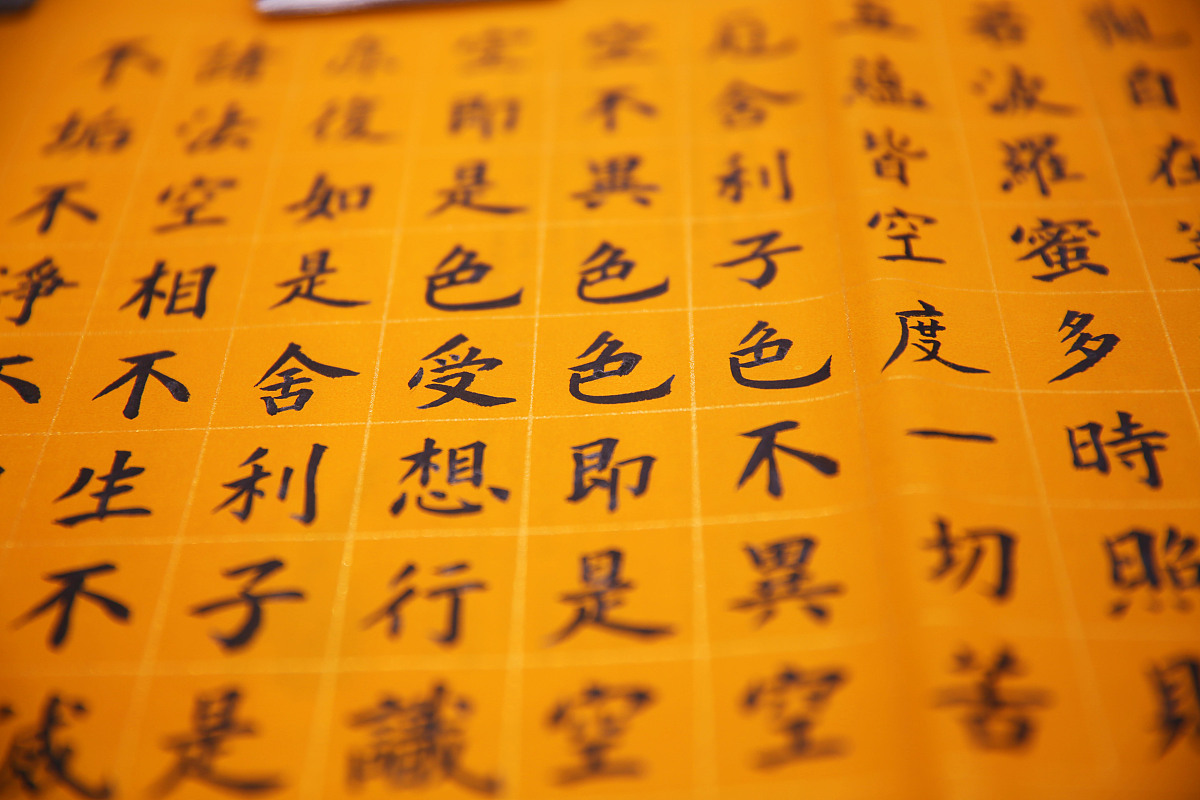 觀自在菩
若波羅蜜多時照見
五蘊皆空度一切苦
厄舍利子色不異空
空不異色色即是空
空即是色受想行識
亦復如是舍利子是
諸法空相不生不滅
不垢不淨不